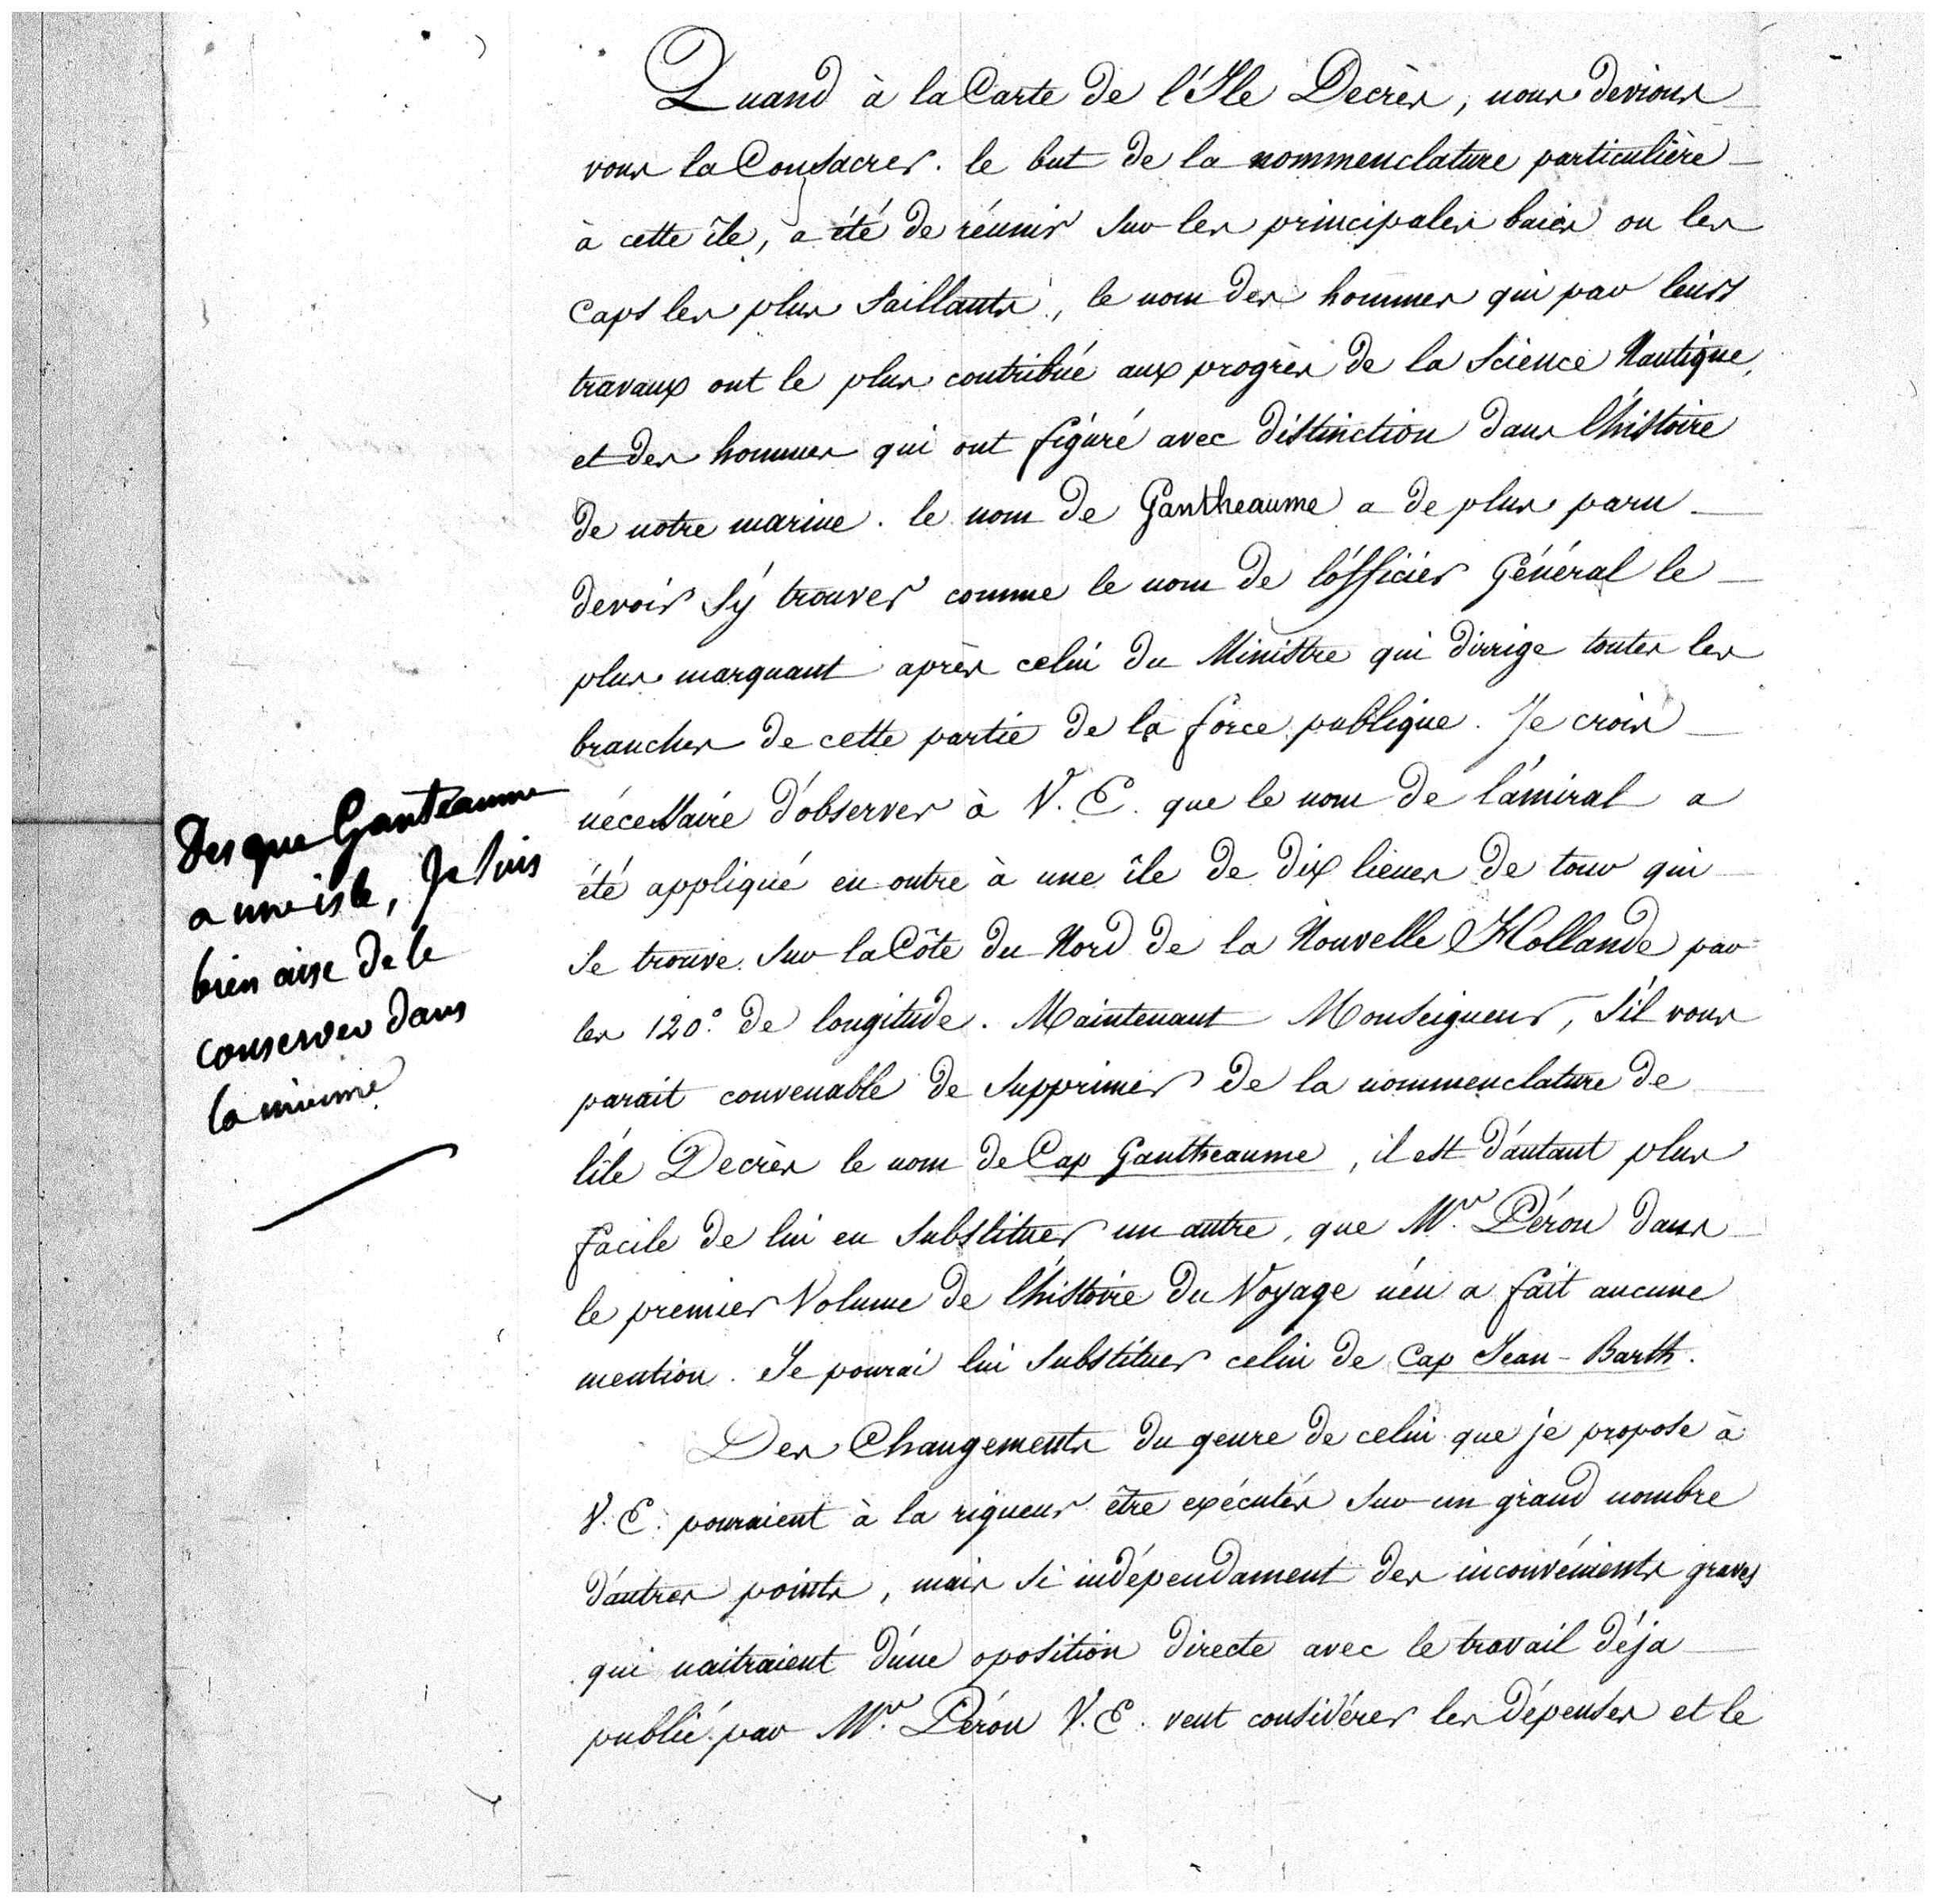 Quand à la Carte de l'Ile Decrès, nous devions
vous la Consacrer. le but de la nommenclature particulière
à cette île, a été de réunir sur les principales baies ou les
caps les plus saillants, le nom des hommes qui par leurs
travaux ont le plus contribué aux progrès de la science Nautique,
et des hommes qui ont figuré avec distinction dans l'histoire
de notre marine. le nom de Gantheaume a de plus paru
devoir s'y trouver comme le nom de l'officier Général le
plus marquant après celui du Ministre qui dirrige toutes les
branches de cette partie de la force publique. Je crois
nécessaire d'observer à V. E. que le nom de l'amiral a
été appliqué en outre à une île de dix lieues de tour qui
se trouve sur la Côte du Nord de la Nouvelle Hollande par
les 120° de longitude. Maintenant Monseigneur, s'il vous
parait convenable de supprimer de la nommenclature de
l'île Decrès le nom de Cap Gantheaume, il est d'autant plus
facile de lui en substituer un autre, que Mr. Péron dans
le premier Volume de l'histoire du Voyage n'en a fait aucune
mention. Je pourai lui substituer celui de Cap Jean-Barth.
Des Changements du genre de celui que je propose à
V. E. pouraient à la rigueur être exécutés sur un grand nombre
d'autres points, mais si indépendament des inconvénients graves
qui naitraient d'une oposition directe avec le travail déja
publié par Mr. Péron V. E. veut considérer les dépenses et le
Des que Ganteaume
a une isle, Je suis
bien aise de le
conserver dans
la mienne